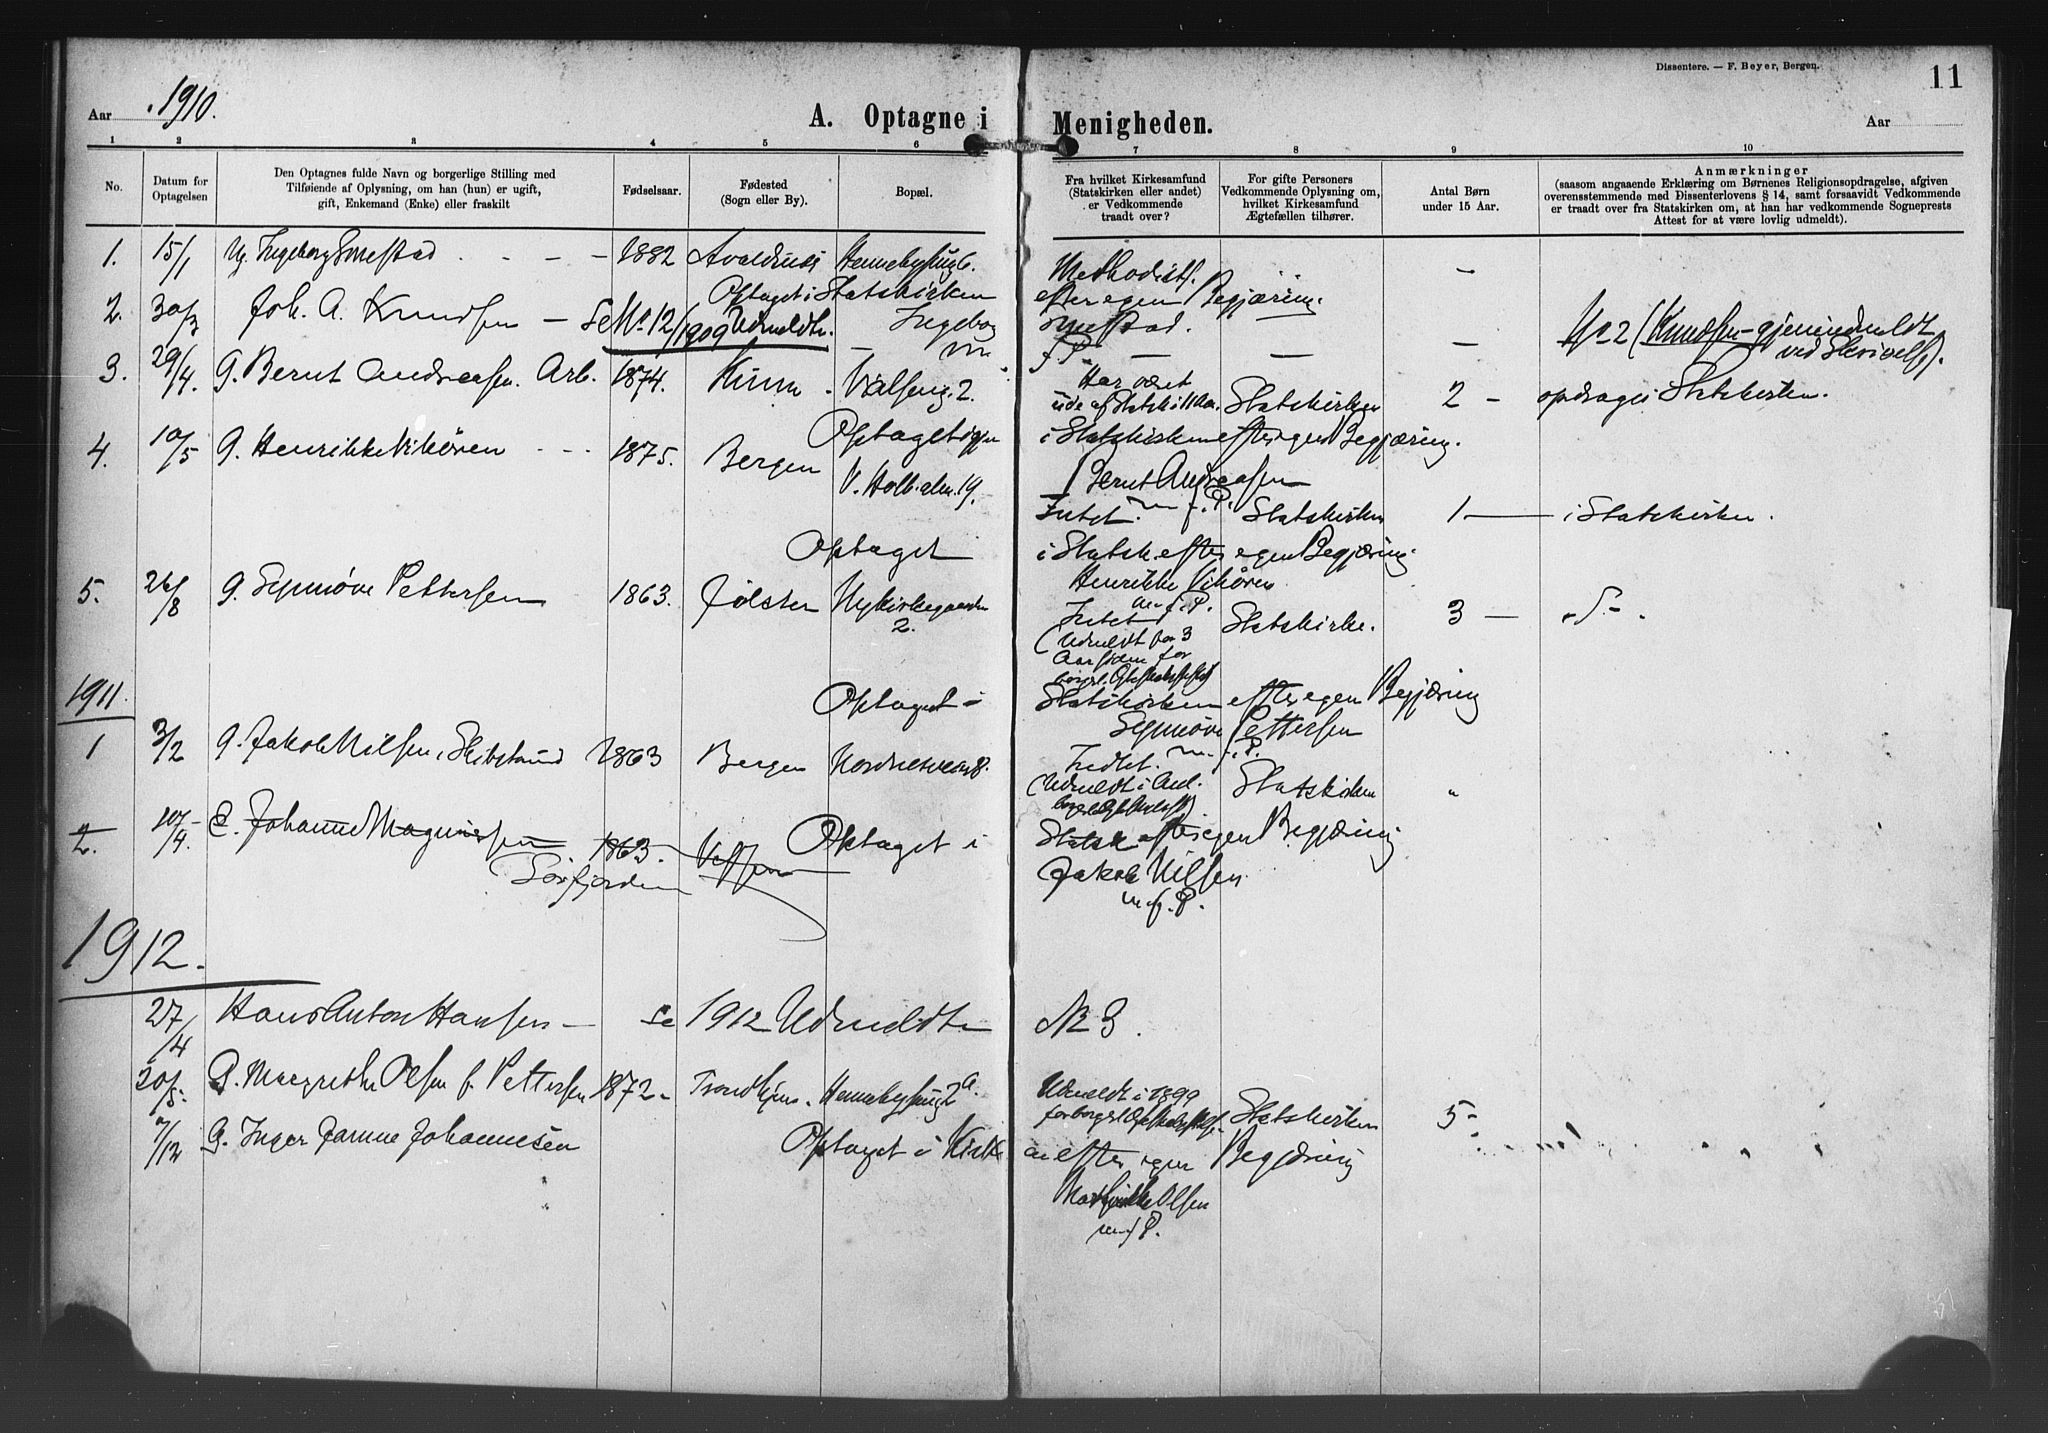 Dissentere. — F. Beyer, Bergen.
11
Aar 1910.
A. Optagne i Menigheden.
Aar
1 2 3 4 5 6 7 8 9 10
No.
Datum for Optagelsen
Den Optagnes fulde Navn og borgerlige Stilling med
Tilføiende af Oplysning, om han (hun) er ugift,
gift, Enkemand (Enke) eller fraskilt
Fødselsaar.
Fødested
(Sogn eller By).
Bopæl.
Fra hvilket Kirkesamfund
(Statskirken eller andet)
er Vedkommende
traadt over?
For gifte Personers
Vedkommende Oplysning om,
hvilket Kirkesamfund
Ægtefællen tilhører.
Antal Børn
under 15 Aar.
Anmærkninger
(saasom angaaende Erklæring om Børnenes Religionsopdragelse, afgiven
overensstemmende med Dissenterlovens § 14, samt forsaavidt Vedkommende
er traadt over fra Statskirken om, at han har vedkommende Sogneprests
Attest for at være lovlig udmeldt).
1. 15/1 Ug. Ingeborg Smestad - - - 1882 Avaldsnes Methodistf. -
Optaget i Statskirken efter egen Begjæring.
2. 30/3 Joh. A. Knudsen - Se No 12/1909 Udmeldte. Ingeborg Smestad.
No 2 (Knudsen - gjenindmeldt
m f. P. - - -
ved Skrivelse).
3. 29/4. G. Bernt Andreassen. Arb. 1874. Kinn. 2. Har været
ude af Statsk. i 11 Aar. Statskirken 2 - opdrages i Statskirken.
Optaget igjen i Statskirken efter egen Begjæring.
4. 10/5 G. Henrikke Vikøren - - - 1875. Bergen
V. Holb. alm. 19. Bernt Andreassen
m. f. P.
Intet. Statskirken 1 — i Statskirken.
Optaget i Statsk. efter egen Begjæring.
Henrikke Vikøren
m. f. P.
5. 26/8 G. Synnøve Pettersen 1863. Jølster Nykirkegaarden 2. Intet Statskirke. 3 -
(Udmeldt for 3
Aar siden for
1911.
Optaget i Statskirken efter egen Begjæring
Synnøve Pettersen
m. f. P.
1 3/2 G. Jakob Nilsen, Skibstømd 1863 Bergen Statskirken "
(Udmeldt i And.
2. 10/4. E. Johanne Magnussen 1863. Vefsen
Sørfjorden
Optaget i Statsk efter egen Begjæring
Jakob Nilsen
m. f. P.
1912.
27/4 Hans Anton Hansen - Se 1912 Udmeldte N 3.
30/5. G. Margrethe Olsen f. Pettersen 1872 - Trondhjem. 2a. Udmeldt i 1899
Statskirken 5 -
7/12 G. Inger Johannesen Optaget i Kirken efter egen Begjæring
Olsen
m. f. P.